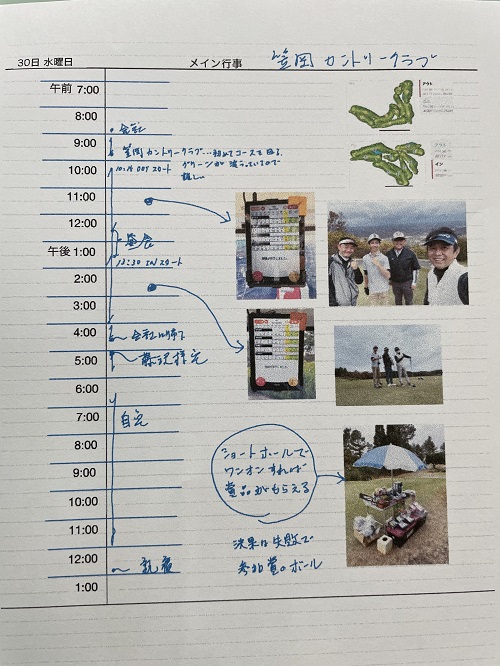 30日 水曜日
メイン行事
笠岡カントリークラブ
午前 7:00
8:00
会社
9:00
笠岡カントリークラブ…初めてコースを回る。
10:00
10:14 OUT スタート
グリーンが波うっているので
難しい
11:00
12:00
昼食
午後 1:00
13:30 INスタート
2:00
3:00
4:00
会社に帰る
5:00
藤沢様宅
6:00
7:00
自宅
8:00
9:00
ショートホールで
ワンオンすれば
賞品がもらえる
10:00
11:00
結果は失敗で
参加賞のボール
12:00
就寝
1:00
アウト
イン